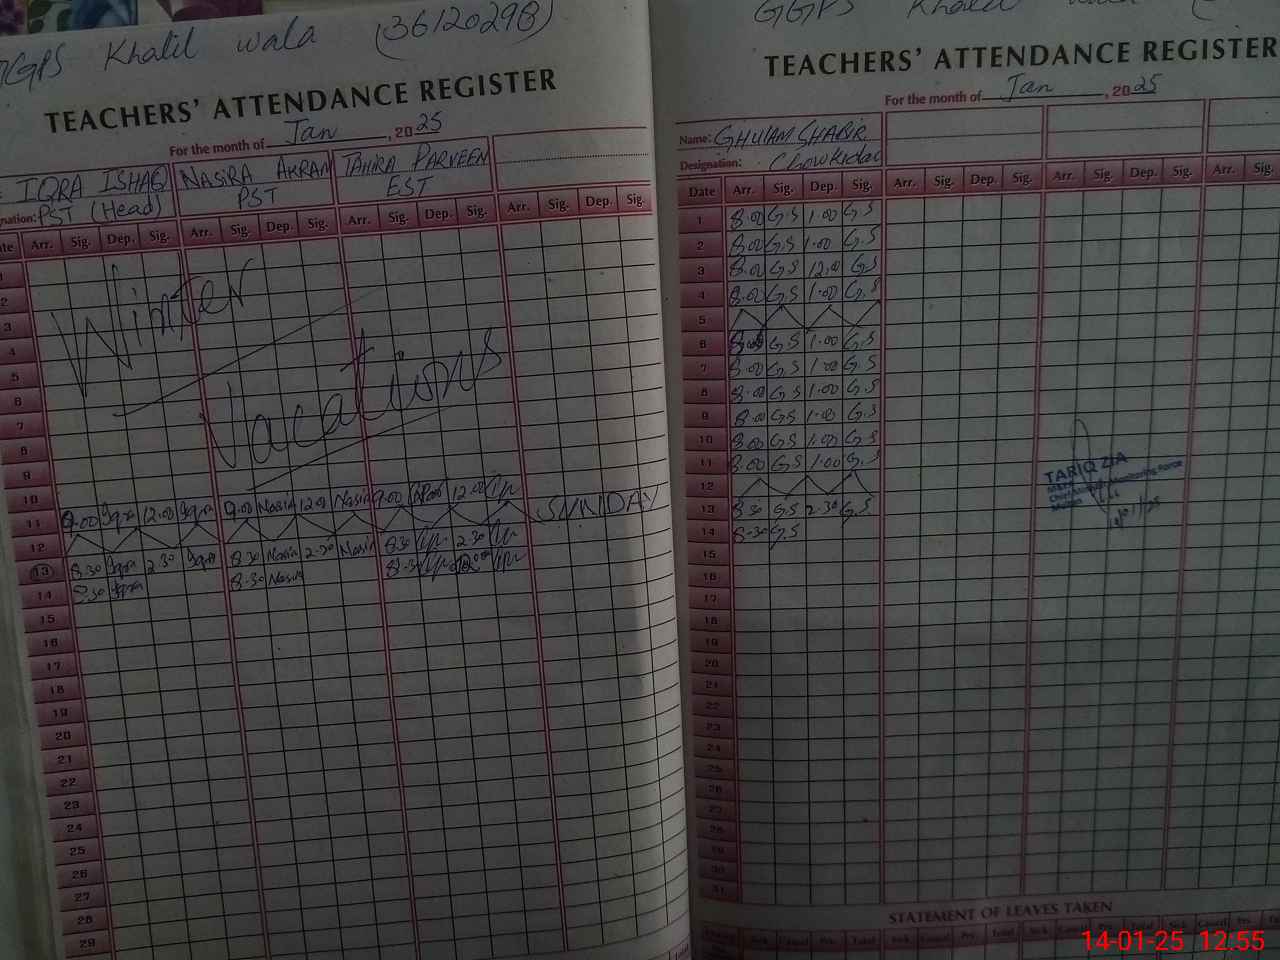 GGPS Khalil wala (36120298)
TEACHERS' ATTENDANCE REGISTER
For the month of Jan, 2025
IQRA ISHAQ NASIRA AKRAM TAHIRA PARVEEN
PST (Head) PST EST
Arr. Sig. Dep. Sig. Arr. Sig. Dep. Sig. Arr. Sig. Dep. Sig. Arr. Sig. Dep. Sig.
1
2
3
4
5
6
7
8
9
10
Winter
Vacations
11 9.00 Iqra 12.00 Iqra 9.00 Nasira 12.00 Nasira 9.00 12.00
12 SUNDAY
13 8.30 Iqra 2.30 Iqra 8.30 Nasira 2.30 Nasira 8.30 2.30
14 8.30 Iqra 8.30 Nasira 8.30
15
16
17
18
19
20
21
22
23
24
25
26
27
28
29
GGPS Khalil wala
TEACHERS' ATTENDANCE REGISTER
For the month of Jan, 2025
Name: GHULAM SHABIR
Designation: Chowkidar
Date Arr. Sig. Dep. Sig. Arr. Sig. Dep. Sig. Arr. Sig. Dep. Sig. Arr. Sig.
1 8.00 G.S 1.00 G.S
2 8.00 G.S 1.00 G.S
3 8.00 G.S 12.00 G.S
4 8.00 G.S 1.00 G.S
5
6 8.00 G.S 1.00 G.S
7 8.00 G.S 1.00 G.S
8 8.00 G.S 1.00 G.S
9 8.00 G.S 1.00 G.S
10 8.00 G.S 1.00 G.S
11 8.00 G.S 1.00 G.S
12
13 8.30 G.S 2.30 G.S
14 8.30 G.S
15
16
17
18
19
20
21
22
23
24
25
26
27
28
29
30
31
TARIQ ZIA
Monitoring Force
STATEMENT OF LEAVES TAKEN
Sick Casual Prv. Total Sick Casual Prv. Total Sick Casual Prv. Total Sick Casual Prv.
14-01-25 12:55